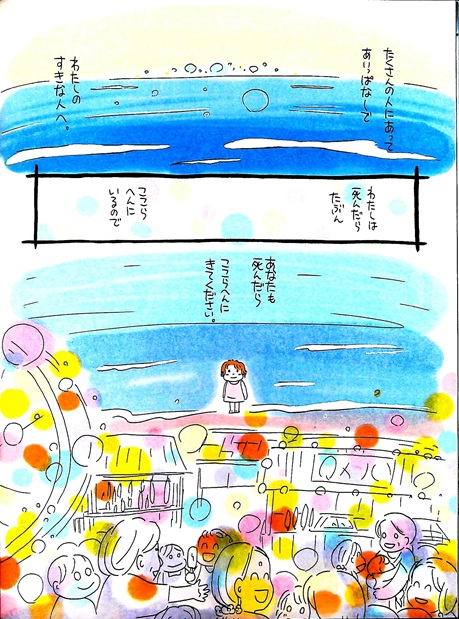 たくさんの人にあって
あいっぱなしで
わたしの
すきな人へ。
わたしは
死んだら
たぶん
ここら
へんに
いるので
あなたも
死んだら
ここらへんに
きてください。